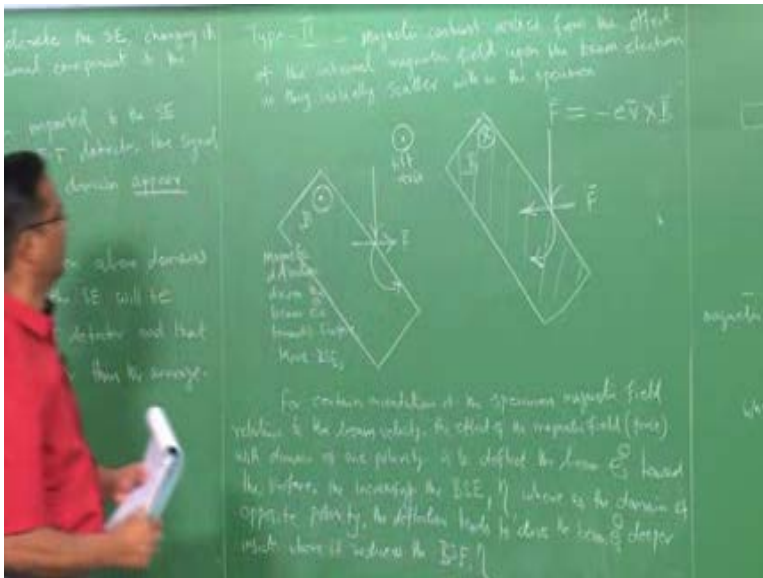 celerate the SE, changing it
tional component to the
imparted to the SE
E-T detector the signal
domain appear
above domains
the SE will be
detector and that
than the average.
Type-II magnetic contrast arises from the effect
of the internal magnetic field upon the beam electron
as they initially scatter within the specimen
F = -e v x B
tilt
axis
B
F
magnetic
deflection
driven
beam
towards surface
More BSE,
B
F
For certain orientation of the specimen magnetic field
relative to the beam velocity, the effect of the magnetic field (force)
with domain of one polarity is to deflect the beam e toward
the surface, the increasing the BSE, η where as the domain of
opposite polarity, the deflection tends to drive the beam e deeper
inside where it reduces the BSE, η
magnetic
wh